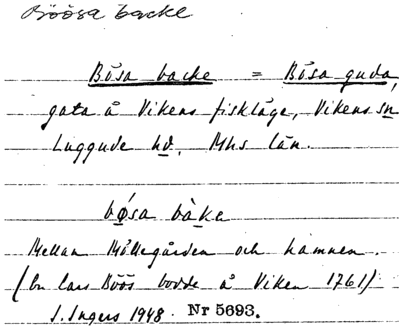 Böösa backe
Bösa backe = Bösa guda,
gata å Vikens fiskläge, Vikens sn
Luggude hd. Mhs län.
bǿsa bàka
Mellan Möllegården och hamnen.
(En Lars Böös bodde å Viken 1761)
I. Ingers 1948. Nr 5693.